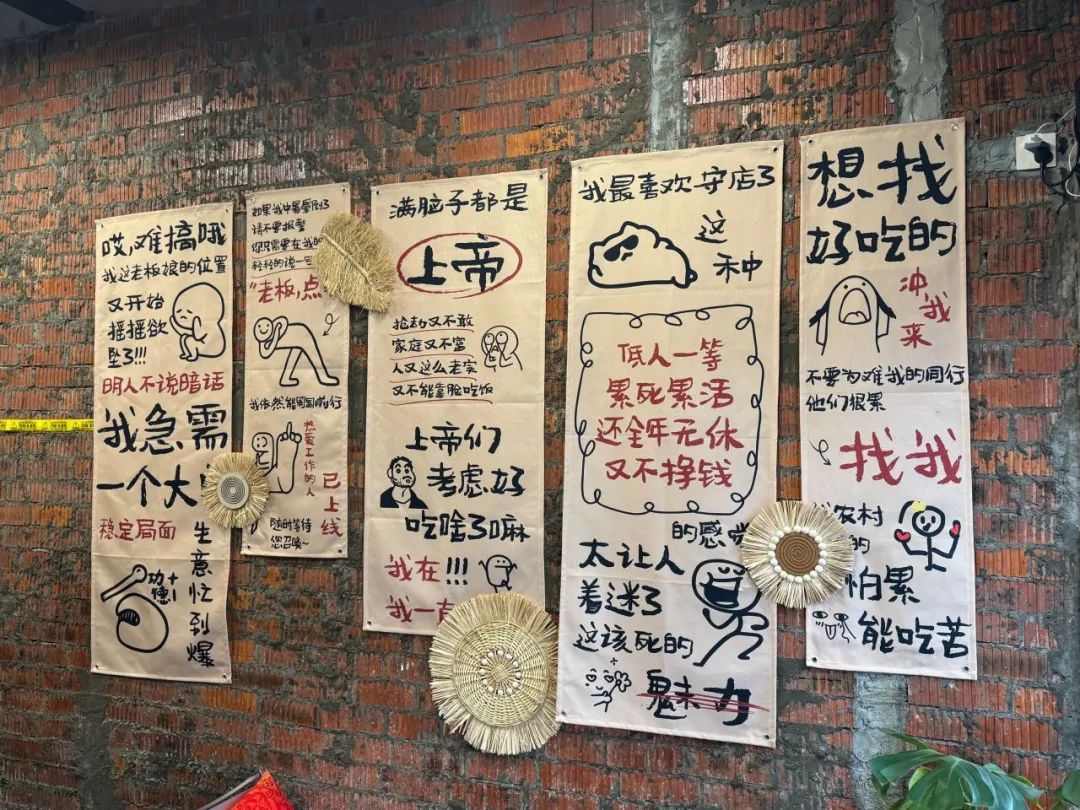 哎,难搞哦
我这老板娘的位置
又开始
摇摇欲
坠了!!!
明人不说暗话
我急需
一个大
稳定局面
生意忙到爆
功德+1
如果我中暑晕倒了
请不要报警
你只需要在我的
轻轻的说一
"老板,点
我依然能匍匐前行
热爱工作的人
已上线
随时等待
您召唤~
满脑子都是
上帝
抢劫又不敢
家庭又不富
人又这么老实
又不能靠脸吃饭
上帝们
考虑好
吃啥了嘛
我在!!!
我一直
我最喜欢守店了
这
种
低人一等
累死累活
还全年无休
又不挣钱
的感觉
太让人
着迷了
这该死的
魅力
想找
好吃的
冲我来
不要为难我的同行
他们很累
找我
农村
的
怕累
能吃苦